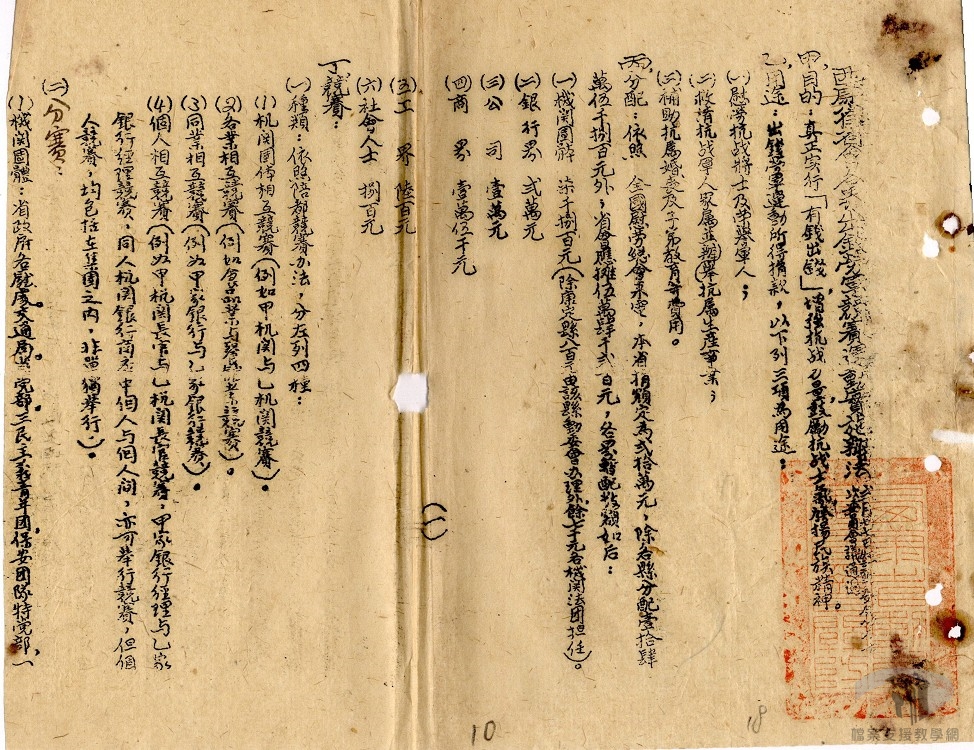 西康省各界出錢勞軍競賽運動實施辦法
甲、目的：真正实行「有錢出錢」增強抗战力量鼓勵抗战士氣發揚民族精神。
乙、用途：出錢勞軍運動所得捐款，以下列三項為用途：
(一)慰勞抗战將士及荣譽軍人；
(二)救濟抗战軍人家属並辦舉抗属生產事業；
(三)補助抗属婚丧及子弟教育等費用。
丙、分配：依照　全國慰勞總會来電，本省捐額定為弍拾萬元，除各縣分配壹拾肆
萬伍仟捌百元外，省會應攤伍萬肆千弍百元，各界暫配捐額如后：
(一)機関團體　柒千捌百元(除康定縣八百元由該縣動委會办理外餘七千元各機関法团担任)。
(二)銀行界　弍萬元
(三)公司　壹萬元
(四)商界　壹萬伍千元
(五)工界　陸百元
(六)社會人士　捌百元
丁、競賽：
(一)種類：依照陪都競賽办法，分左列四種：
(1)机関團体相互競賽(例如甲机関与乙机関競賽)。
(2)各業相互競賽(例如
(3)同業相互競賽(例如甲家銀行与乙家銀行競賽)。
(4)個人相互競賽(例如甲机関長官与乙机関長官競賽，甲家銀行經理与乙家
銀行經理競賽，同人机関銀行商店中個人与個人间，亦可舉行競賽，但個
人競賽，均包括在集團之内，非單獨舉行。)。
(二)分賽：
(1)機関團體：省政府各廳處交通局省党部三民主義青年团保安团隊特党部、
(一)
10
18
檔案支援教學網